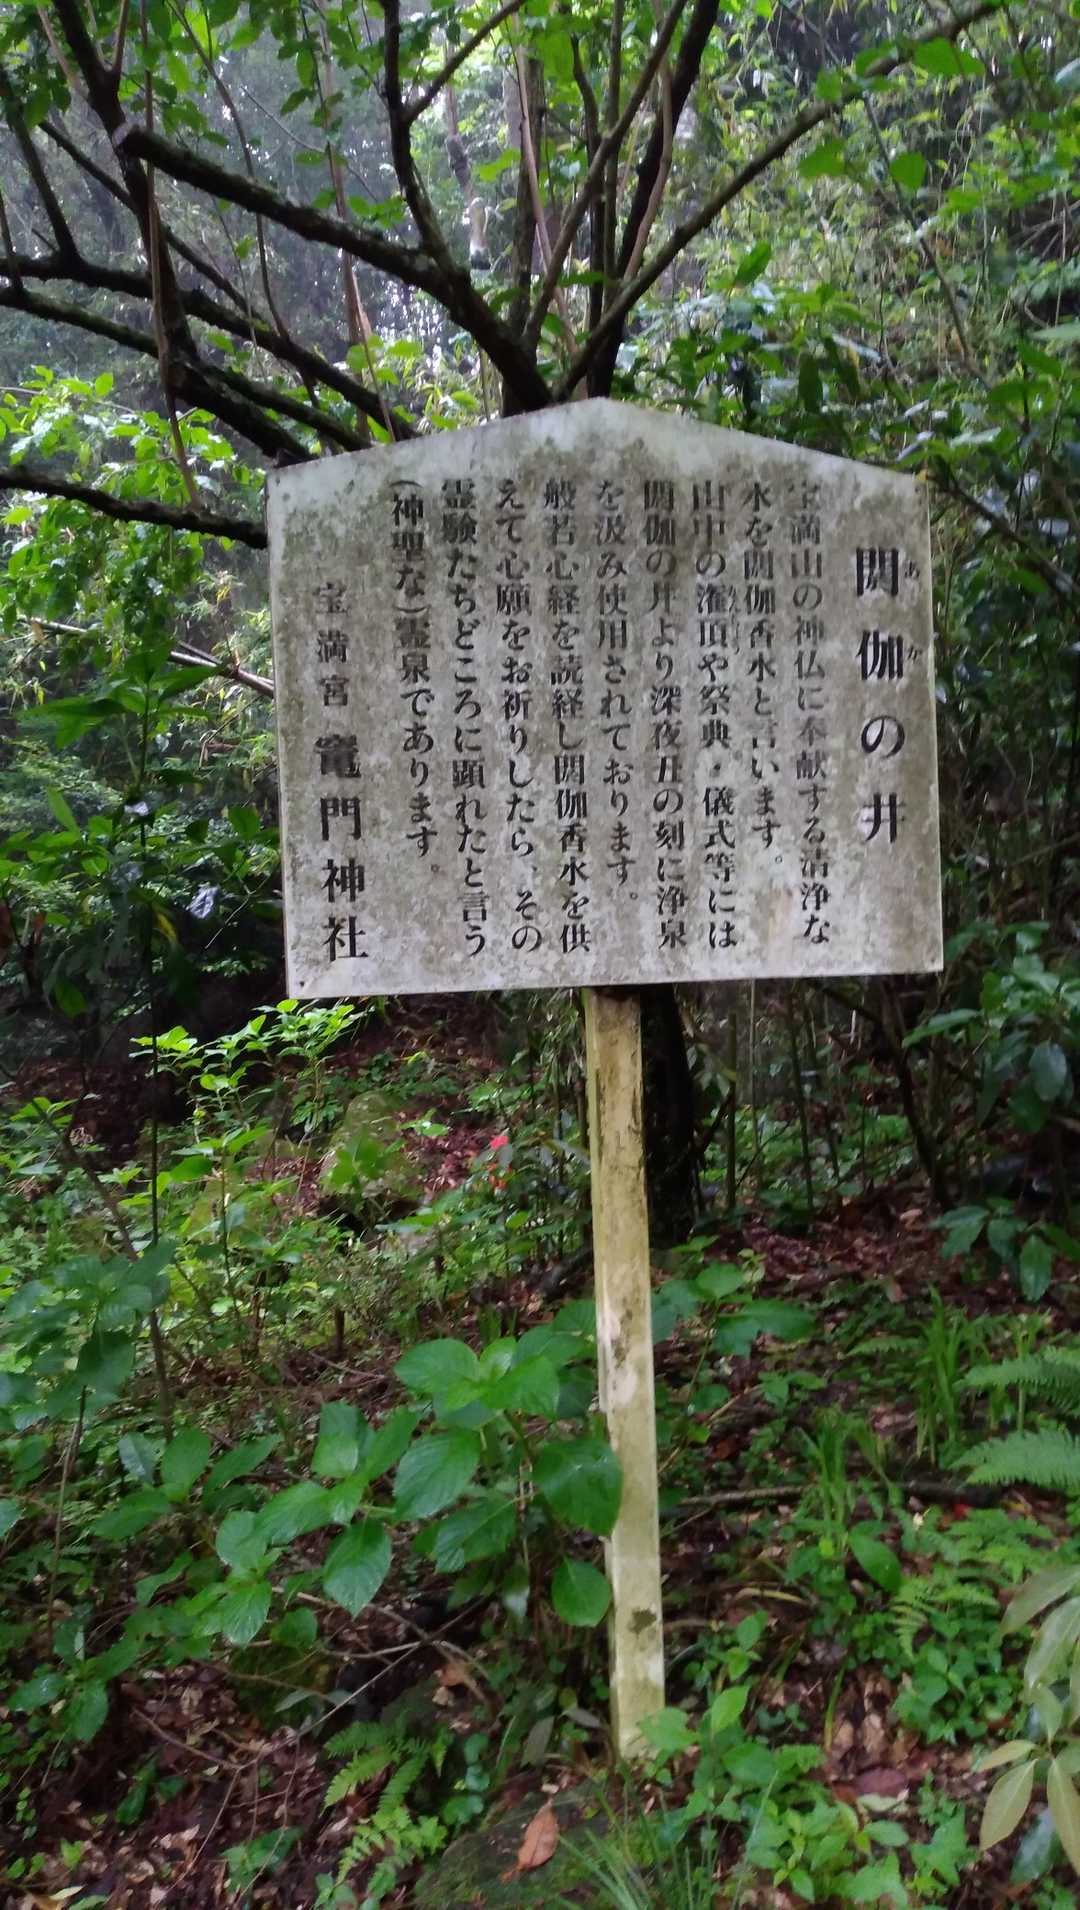 閼伽の井
あか
宝満山の神仏に奉献する清浄な
水を閼伽香水と言います。
山中の潅頂や祭典・儀式等には
閼伽の井より深夜丑の刻に浄泉
を汲み使用されております。
般若心経を読経し閼伽香水を供
えて心願をお祈りしたら、その
霊験たちどころに顕れたと言う
(神聖な)霊泉であります。
宝満宮 竈門神社